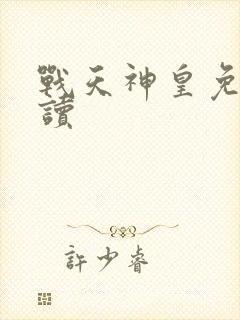 戰天神皇免
讀
許少睿